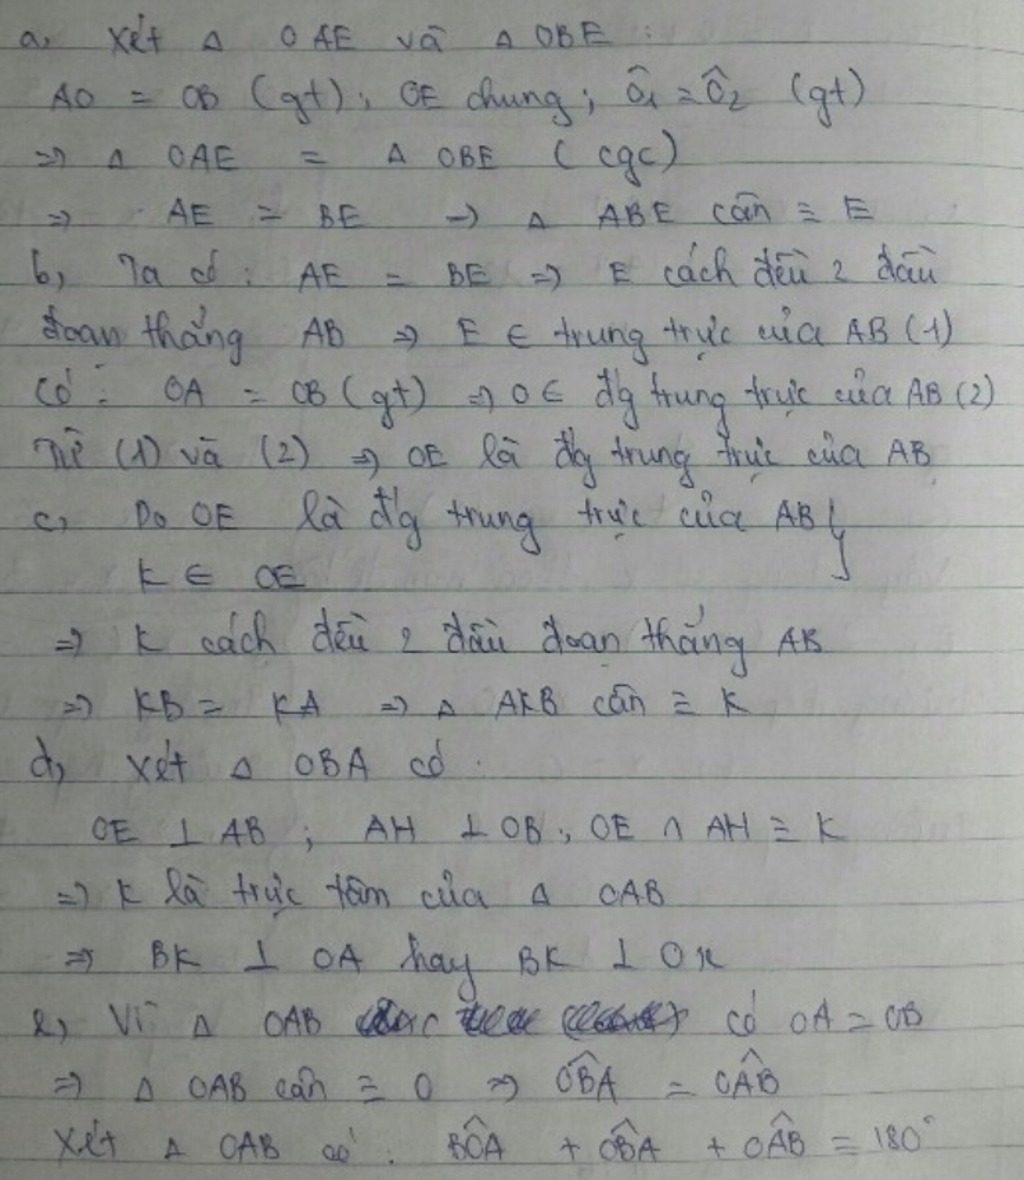 a, Xét Δ OAE và Δ OBE :
AO = OB (gt) ; OE chung ; Ô1 = Ô2 (gt)
=> Δ OAE = Δ OBE (cgc)
=> AE = BE -> Δ ABE cân ≡ E
b, Ta có : AE = BE => E cách đều 2 đầu
đoạn thẳng AB => E ∈ trung trực của AB (1)
Có : OA = OB (gt) => O ∈ đ'g trung trực của AB (2)
Từ (1) và (2) => OE là đ'g trung trực của AB
c, Do OE là đ'g trung trực của AB }
K ∈ OE
=> K cách đều 2 đầu đoạn thẳng AB
=> KB = KA => Δ AKB cân ≡ K
d, Xét Δ OBA có
OE ⊥ AB ; AH ⊥ OB , OE ∩ AH ≡ K
=> K là trực tâm của Δ OAB
=> BK ⊥ OA hay BK ⊥ Ox
e, Vì Δ OAB có OA = OB
=> Δ OAB cân ≡ O => OB̂A = OÂB
Xét Δ OAB có : BÔA + OB̂A + OÂB = 180°